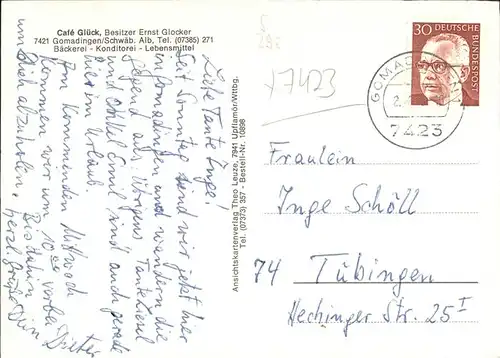 Café Glück, Besitzer Ernst Glocker
7421 Gomadingen/Schwäb. Alb, Tel. (07385) 271
Bäckerei - Konditorei - Lebensmittel
Liebe Tante Inge!
Seit Sonntag sind wir jetzt hier
in Gomadingen und wandern die
Gegend ab. Übrigens Tante Liesel
und Onkel Emil sind auch gerade
hier im Urlaub.
Am kommenden Mittwoch
kommen wir um 10 vorbei
um Dich abzuholen.
Bis dahin
herzl. Grüße Dein Dieter
Ansichtskartenverlag Theo Leuze, 7941 Upflamör/Wttbg.
Tel. (07373) 357 - Bestell-Nr. 10898
7423
30 DEUTSCHE
BUNDESPOST
GOMADINGEN
7423
Fräulein
Inge Schöll
74 Tübingen
Hechinger Str. 25 I